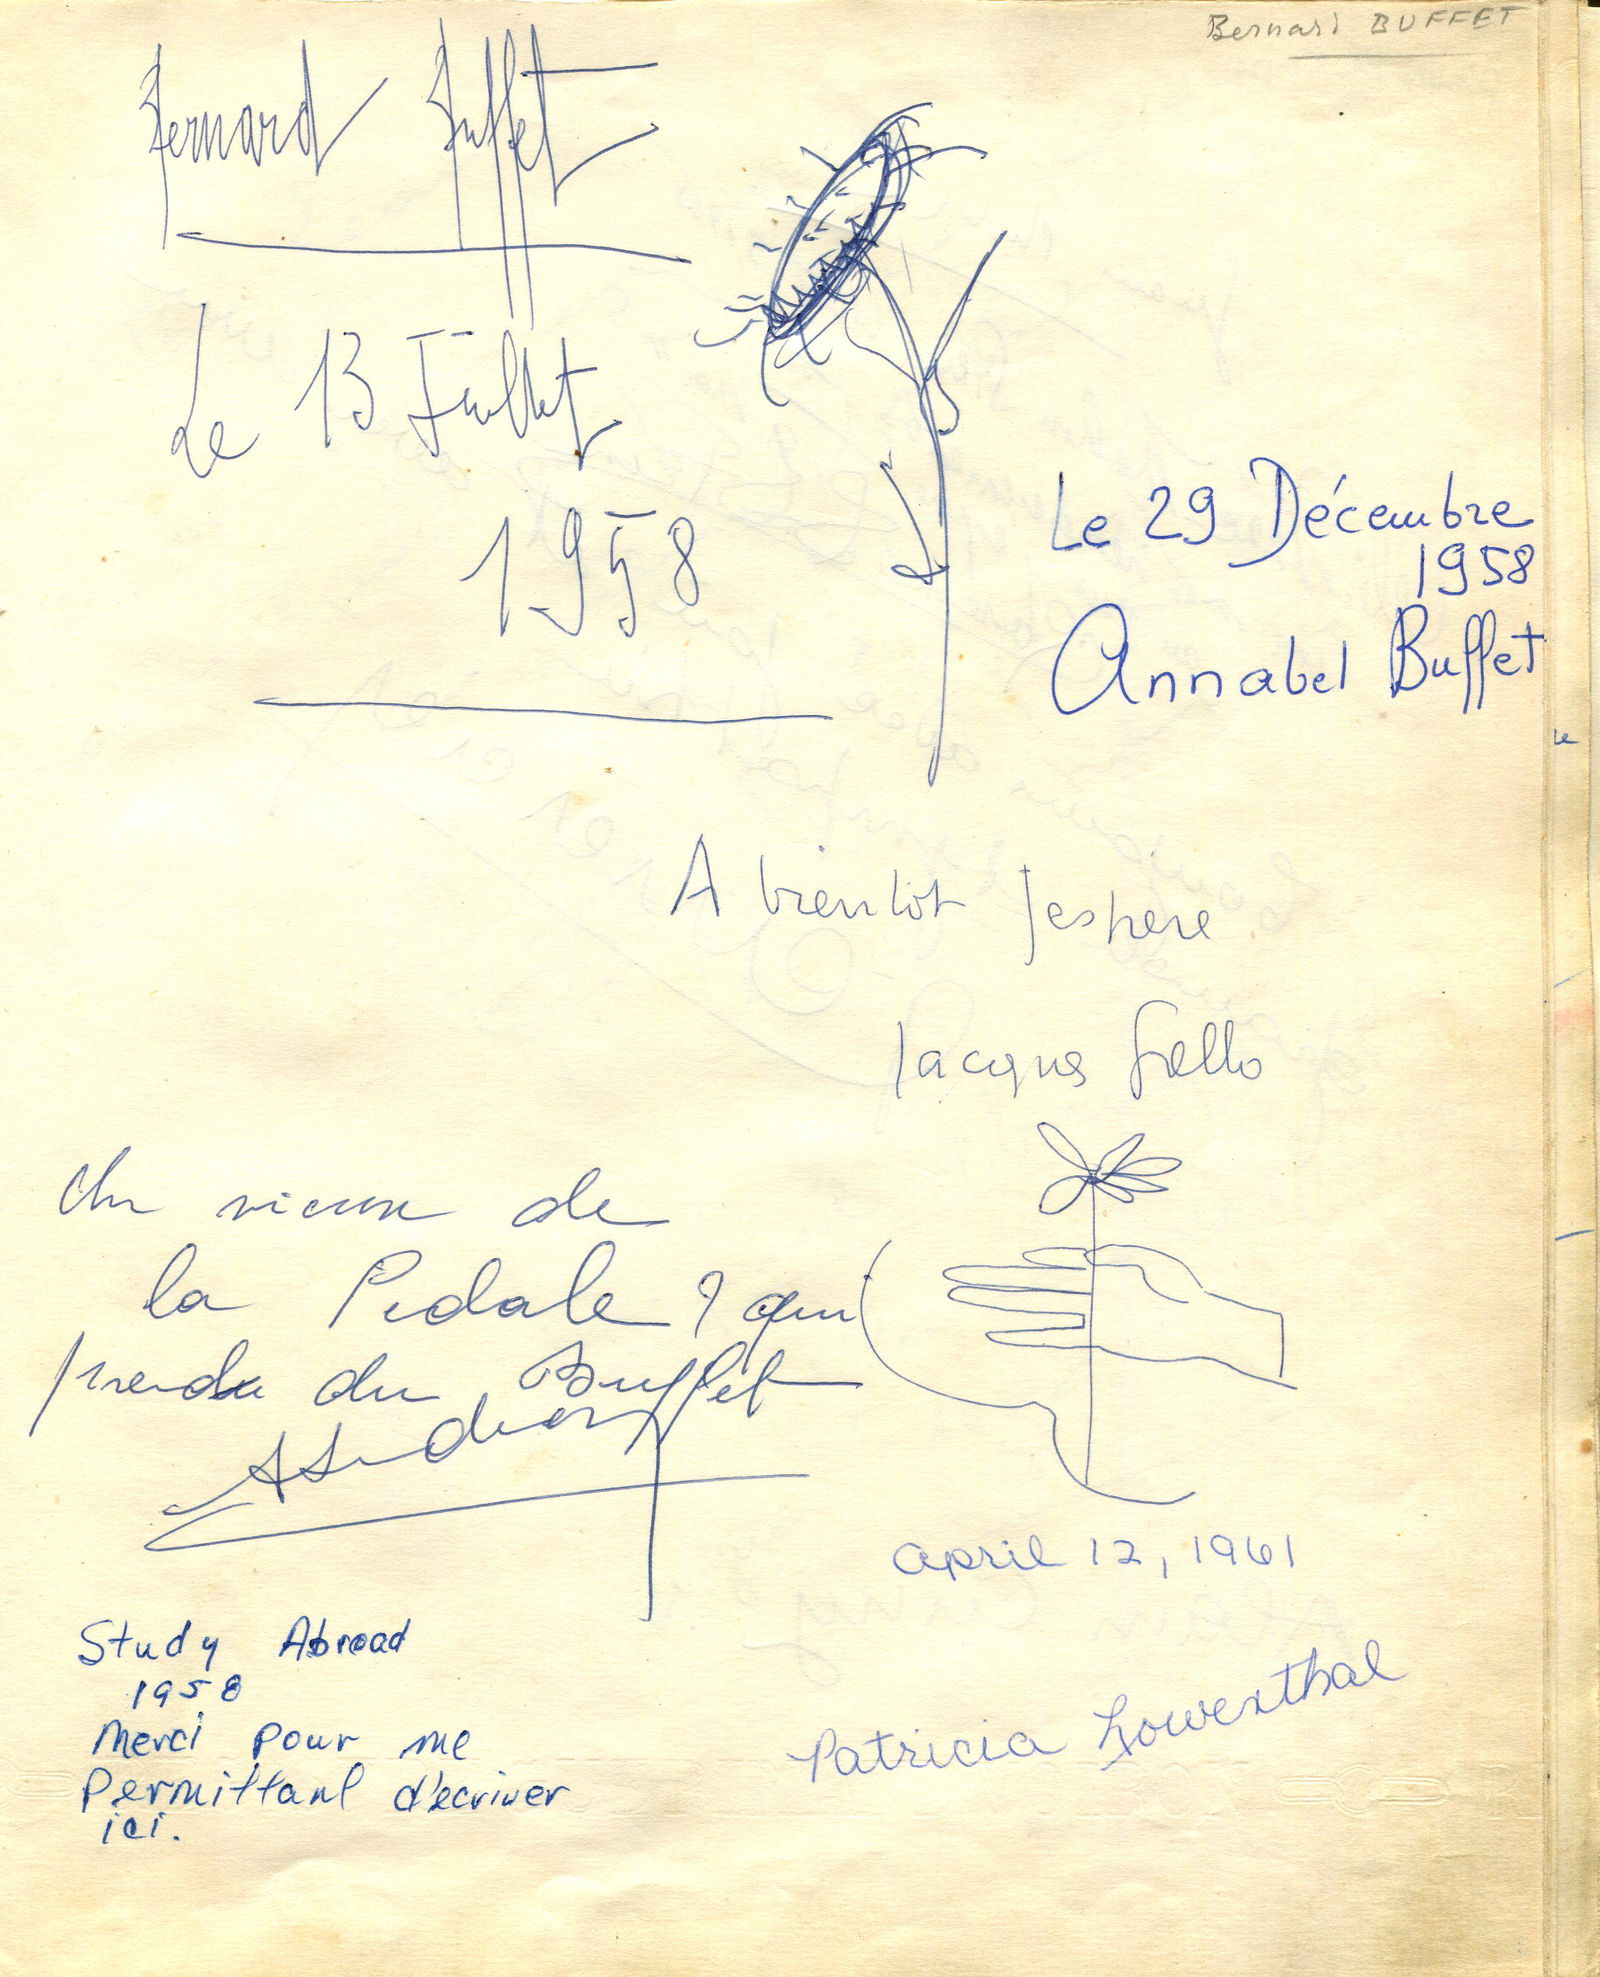 Bernard BUFFET
Bernard Buffet
Le 13 Juillet
1958
Le 29 Décembre
1958
Annabel Buffet
A bientôt J'espere
Jacques Gallo
Un vieux de
la Pedale ? qui
du Buffet
April 12, 1961
Patricia Lowenthal
Study Abroad
1958
Merci pour me
Permittant d'ecriver
ici.